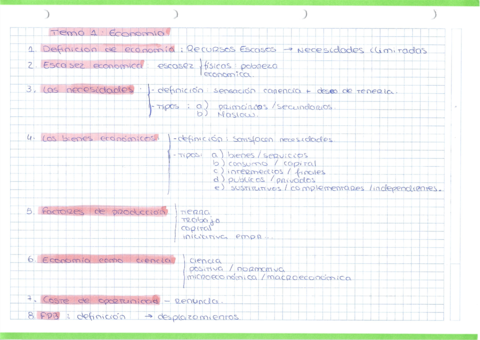 Tema 1: Economía
1. Definición de economía : Recursos Escasos → Necesidades ilimitadas
2. Escasez económica: escasez física: pobreza
económica.
3. Las necesidades : - definición: sensación carencia + deseo de tenerla.
- tipos : a) primarios / secundarios.
b) Maslow.
4. Los bienes económicos - definición: satisfacen necesidades
- tipos: a) bienes / servicios
b) consumo / capital
c) intermedios / finales
d) públicos / privados
e) sustitutivos / complementarios / independientes.
5. Factores de producción tierra
trabajo
capital
iniciativa empr.
6. Economía como ciencia ciencia
positiva / normativa
microeconómica / macroeconómica
7. Coste de oportunidad - Renuncia.
8. FPP : definición → desplazamientos